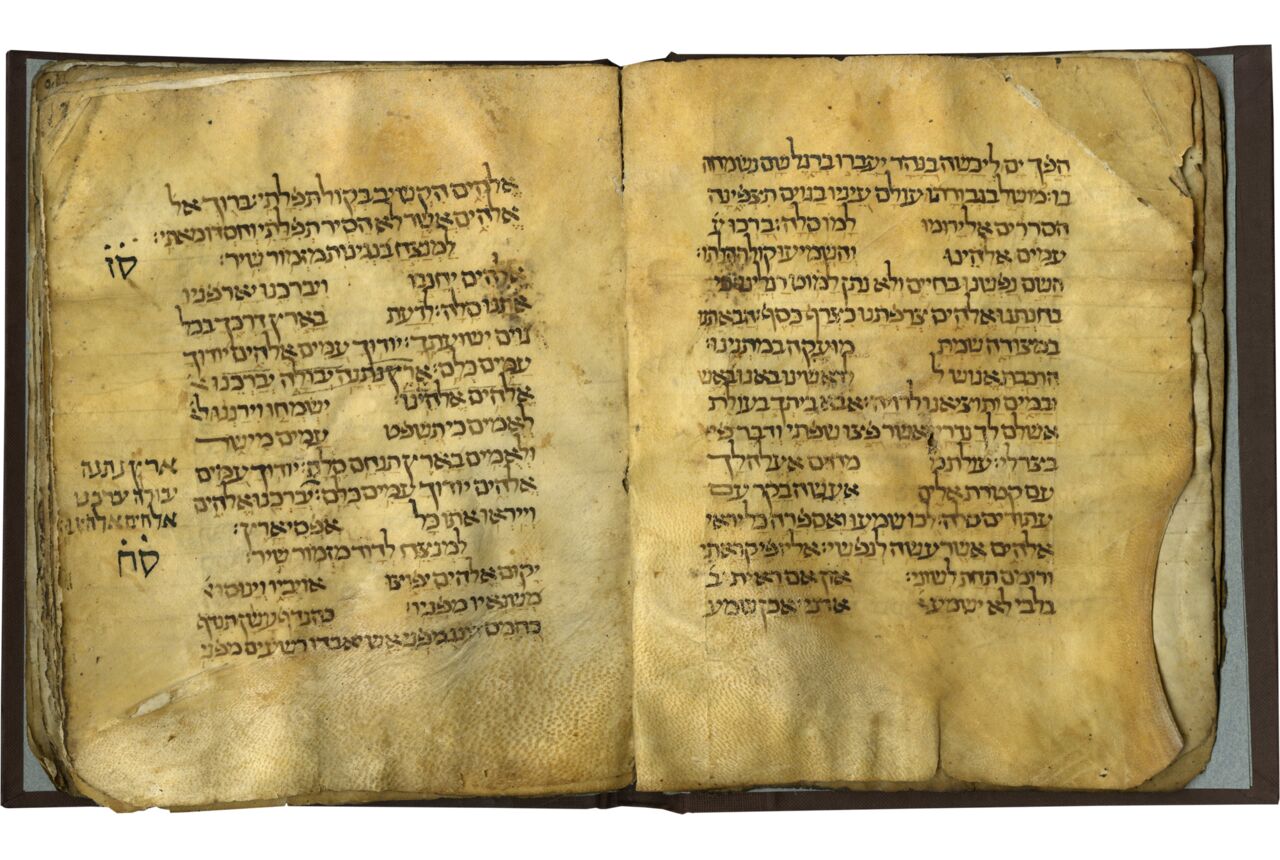 הפך ים ליבשה בנהר יעברו ברגל שם נשמחה
בו׃ מושל בגבורתו עולם עיניו בגוים תצפינה
הסררים אל ירומו למו סלה׃ ברכו ע
עמים אלהינו והשמיעו קול תהלתו׃
השם נפשנו בחיים ולא נתן למוט רגלינו׃ כי
בחנתנו אלהים צרפתנו כצרף כסף׃ הבאתנו
במצודה שמת מועקה במתנינו׃
הרכבת אנוש ל לראשינו באנו באש
ובמים ותוציאנו לרויה׃ אבא ביתך בעולת
אשלם לך נדרי׃ אשר פצו שפתי ודבר פי
בצר לי׃ עולת מ מחים אעלה לך
עם קטרת אלים אעשה בקר עם
עתודים סלה׃ לכו שמעו ואספרה כל יראי
אלהים אשר עשה לנפשי׃ אליו פי קראתי
ורומם תחת לשוני׃ און אם ראיתי ב
בלבי לא ישמע אדני׃ אכן שמע
אלהים הקשיב בקול תפלתי׃ ברוך אל
אלהים אשר לא הסיר תפלתי וחסדו מאתי׃
סז למנצח בנגינות מזמור שיר׃
אלהים יחננו ויברכנו יאר פניו
אתנו סלה׃ לדעת בארץ דרכך בכל
גוים ישועתך׃ יודוך עמים אלהים יודוך
עמים כלם׃ ארץ נתנה יבולה יברכנו א
אלהים אלהינו׃ ישמחו וירננו ל
לאמים כי תשפט עמים מישר
ולאמים בארץ תנחם סלה׃ יודוך עמים
אלהים יודוך עמים כלם׃ יברכנו אלהים
וייראו אתו כל אפסי ארץ׃
ארץ נתנה
יבולה יברכנו
אלהים אלהינו׃
סח למנצח לדוד מזמור שיר׃
יקום אלהים יפוצו אויביו וינוסו
משנאיו מפניו׃ כהנדף עשן תנדף
כהמס דונג מפני אש יאבדו רשעים מפני